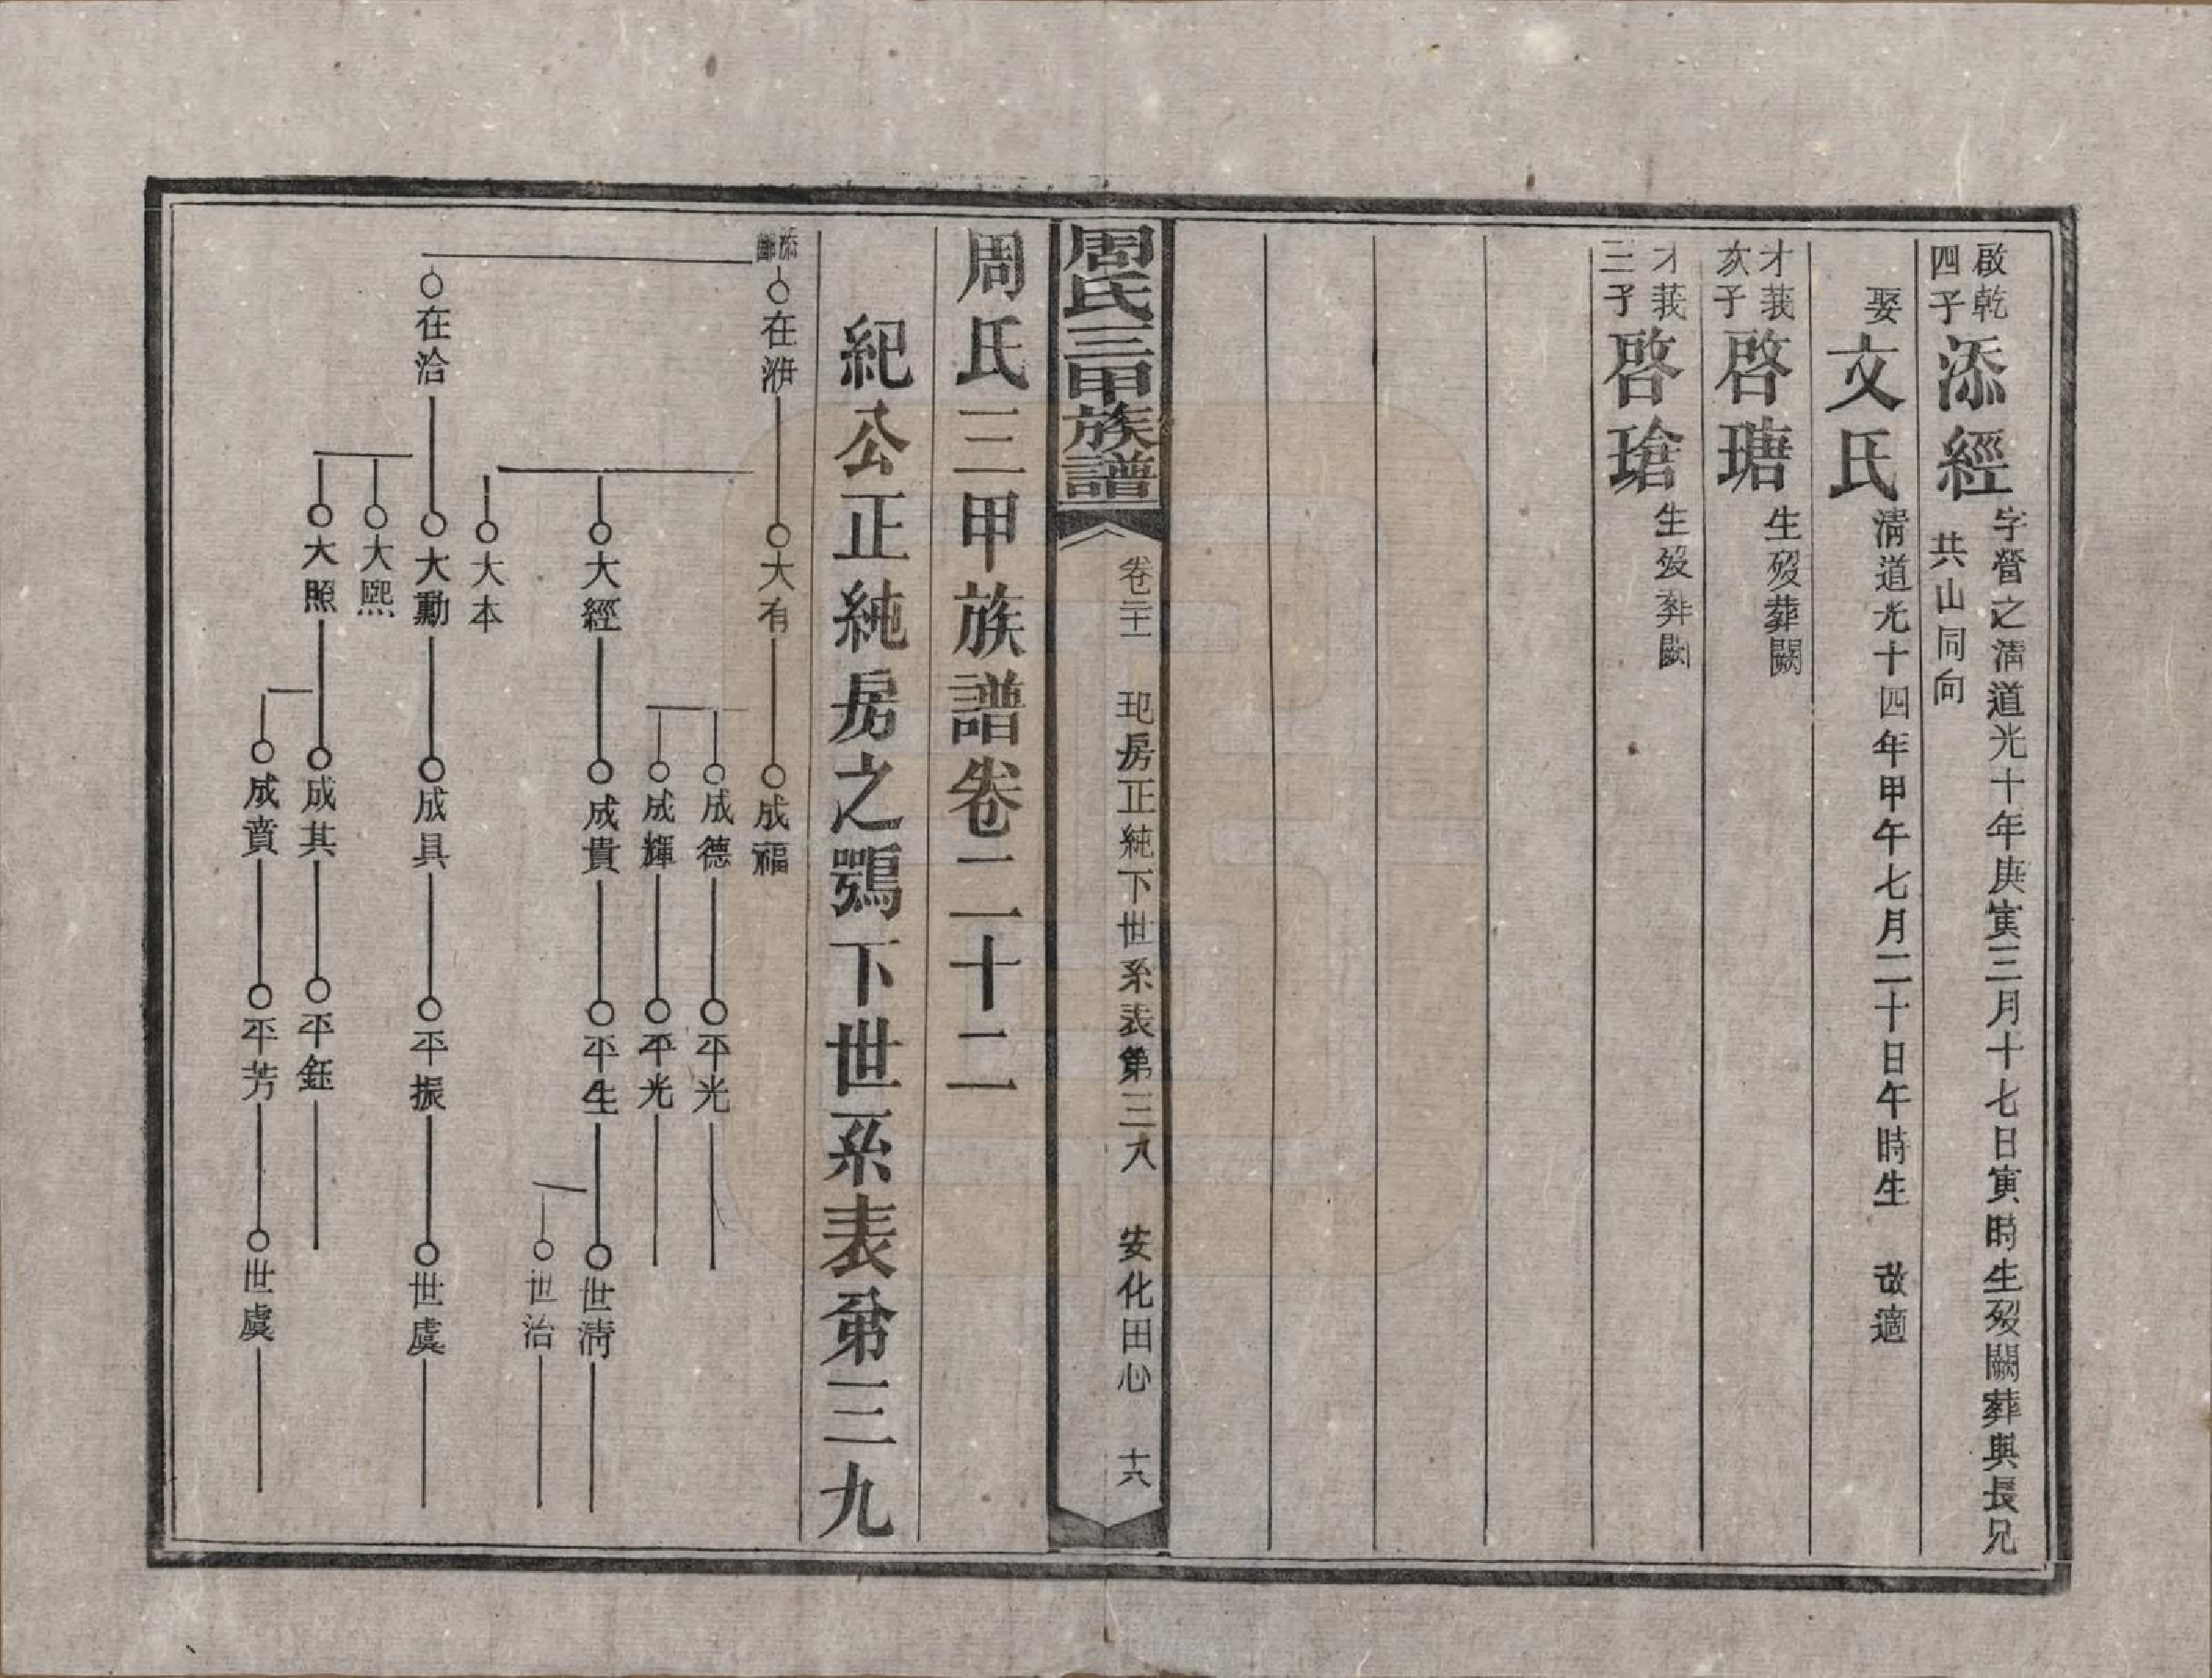 啟乾
四子
添經
字晉之清道光十年庚寅三月十七日寅時生歿闕葬與長兄
共山同向
娶文氏
清道光十四年甲午七月二十日午時生 改適
才莪
次子
啓瑭
生歿葬闕
才莪
三子
啓瑲
生歿葬闕
周氏三甲族譜
卷二十一 玘房正純下世系表第三八 安化田心 十六
周氏三甲族譜卷二十二
紀公正純房之鶚下世系表第三九
在洢
大有
成福
成德
平光
成輝
平光
大經
成貴
平生
世清
世治
大本
在洽
大勳
成具
平振
世虞
大熙
大照
成其
平鈺
成賁
平芳
世虞